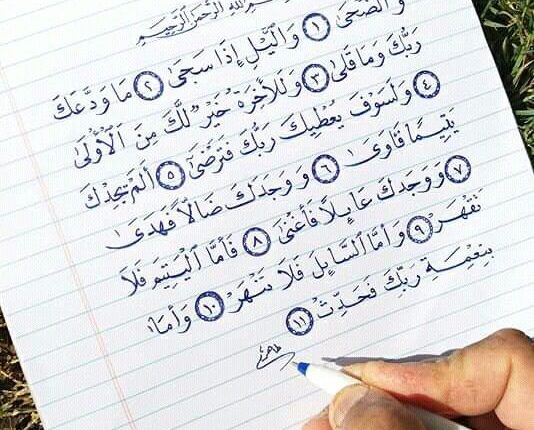 بسم الله الرحمن الرحيم
وَالضُّحَىٰ ١ وَالَّيْلِ إِذَا سَجَىٰ ٢ مَا وَدَّعَكَ
رَبُّكَ وَمَا قَلَىٰ ٣ وَلَلْأَخِرَةُ خَيْرٌ لَّكَ مِنَ الْأُولَىٰ
٤ وَلَسَوْفَ يُعْطِيكَ رَبُّكَ فَتَرْضَىٰ ٥ أَلَمْ يَجِدْكَ
يَتِيمًا فَآوَىٰ ٦ وَوَجَدَكَ ضَالًّا فَهَدَىٰ
٧ وَوَجَدَكَ عَايِلًا فَأَغْنَىٰ ٨ فَأَمَّا الْيَتِيمَ فَلَا
تَقْهَرْ ٩ وَأَمَّا السَّايِلَ فَلَا تَنْهَرْ ١٠ وَأَمَّا
بِنِعْمَةِ رَبِّكَ فَحَدِّثْ ١١